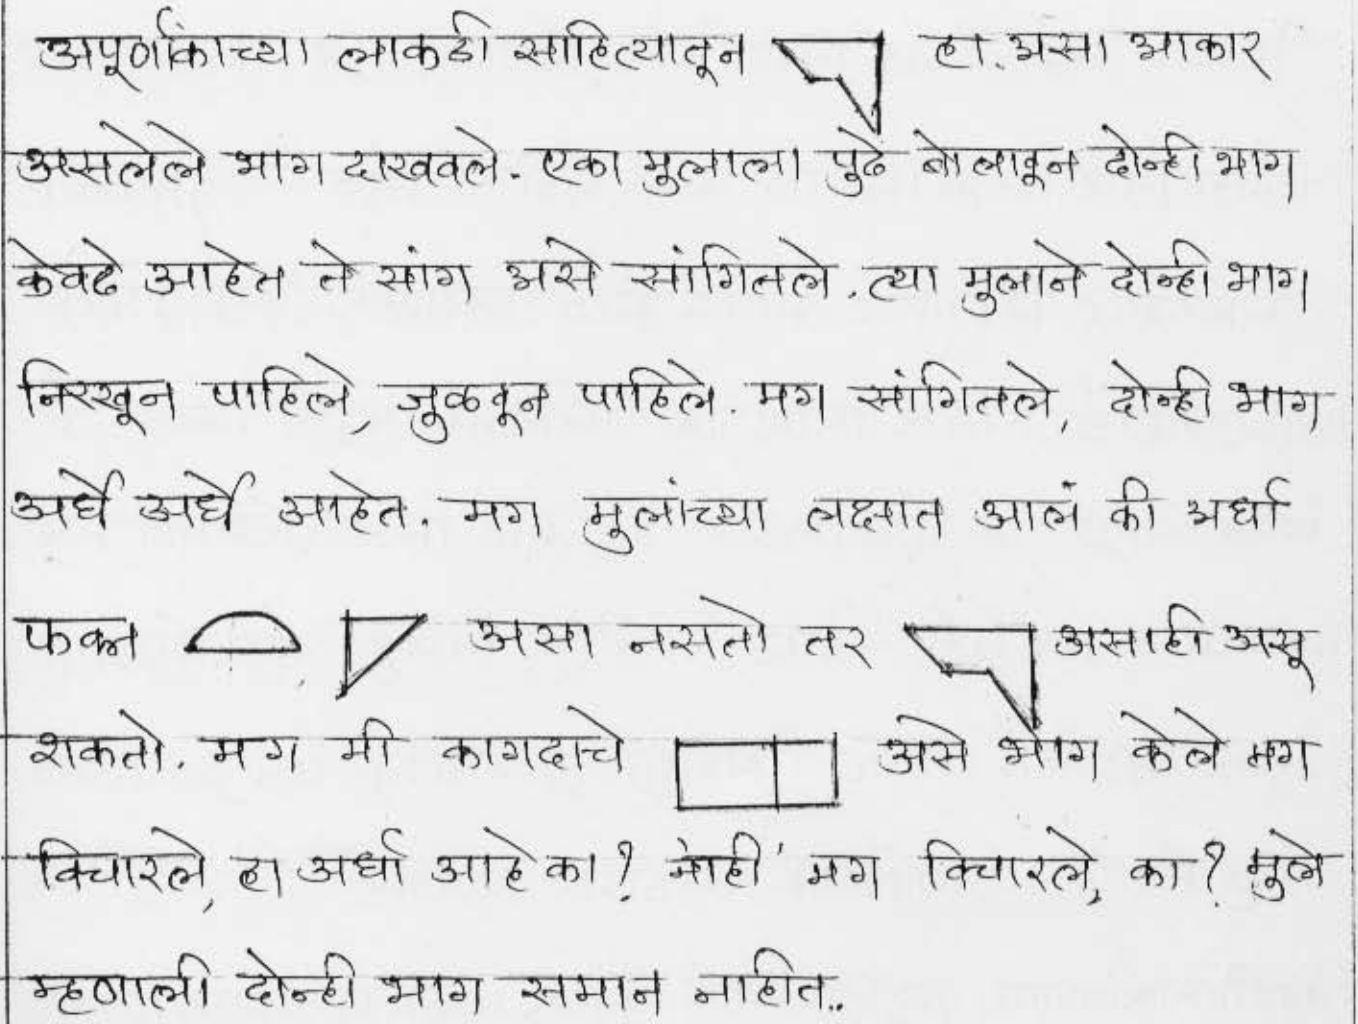 अपूर्णांकाच्या लाकडी साहित्यातून हा. असा आकार
असलेले भाग दाखवले. एका मुलाला पुढे बोलावून दोन्ही भाग
केवढे आहेत ते सांग असे सांगितले. त्या मुलाने दोन्ही भाग
निरखून पाहिले, जुळवून पाहिले. मग सांगितले, दोन्ही भाग
अर्धे अर्धे आहेत. मग मुलांच्या लक्षात आलं की अर्धा
फक्त असा नसतो तर असाही असू
शकतो. मग मी कागदाचे असे भाग केले मग
विचारले, हा अर्धा आहे का? 'नाही' मग विचारले, का? मुले
म्हणाली दोन्ही भाग समान नाहीत..